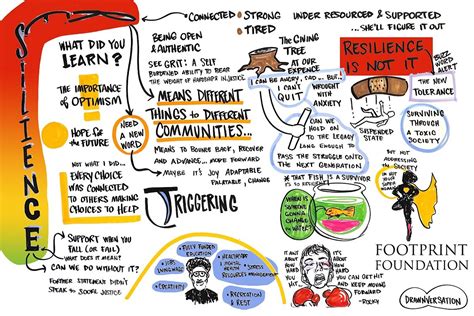 SILIENCE
CONNECTED
STRONG
TIRED
UNDER RESOURCED & SUPPORTED
...SHE'LL FIGURE IT OUT
WHAT DID YOU
LEARN?
THE IMPORTANCE
OF OPTIMISM
HOPE FOR
THE FUTURE
NOT WHAT I DID...
EVERY CHOICE
WAS CONNECTED
TO OTHERS MAKING
CHOICES TO HELP
SUPPORT WHEN YOU
FALL (OR FAIL)
WHAT DOES IT MEAN?
CAN WE DO WITHOUT IT?
FURTHER STATEMENT DIDN'T
SPEAK TO SOCIAL JUSTICE
BEING OPEN
& AUTHENTIC
SEE GRIT: A SELF
BURDENED ABILITY TO BEAR
THE WEIGHT OF HARDSHIPS/INJUSTICE
MEANS DIFFERENT
THINGS TO DIFFERENT
COMMUNITIES...
NEED
A NEW
WORD
MEANS TO BOUNCE BACK, RECOVER
AND ADVANCE... MOVE FORWARD
MAYBE IT'S JOY ADAPTABLE
PALATABLE, CHANGE
TRIGGERING
THE GIVING
TREE
AT OUR
EXPENCE
I CAN BE ANGRY, SAD... BUT...
I CAN'T
QUIT
WROUGHT
WITH
ANXIETY
CAN WE
HOLD ON
TO THE LEGACY
LONG ENOUGH TO
PASS THE STRUGGLE ONTO
THE NEXT GENERATION
RESILIENCE
IS NOT IT
BUZZ
WORD
ALERT
THE NEW
TOLERANCE
SUSPENDED
STATE
SURVIVING
THROUGH
A TOXIC
SOCIETY
BUT NOT
ADDRESSING
THE
SOCIETY
THAT FISH IS A SURVIVOR
WHEN IS
SOMEONE
GONNA
CHANGE
THE
WATER?
FULLY FUNDED
EDUCATION
JOBS
LIVING WAGE
CREATIVITY
HEALTHCARE
MENTAL HEALTH
STRESS
RESOURCES
MANAGEMENT
RECREATION
& REST
IT AIN'T
ABOUT
HOW
HARD
YOU
HIT
IT'S
ABOUT
HOW HARD
YOU CAN GET HIT
AND KEEP MOVING
FORWARD
-ROCKY
FOOTPRINT
FOUNDATION
DRAWNVERSATION